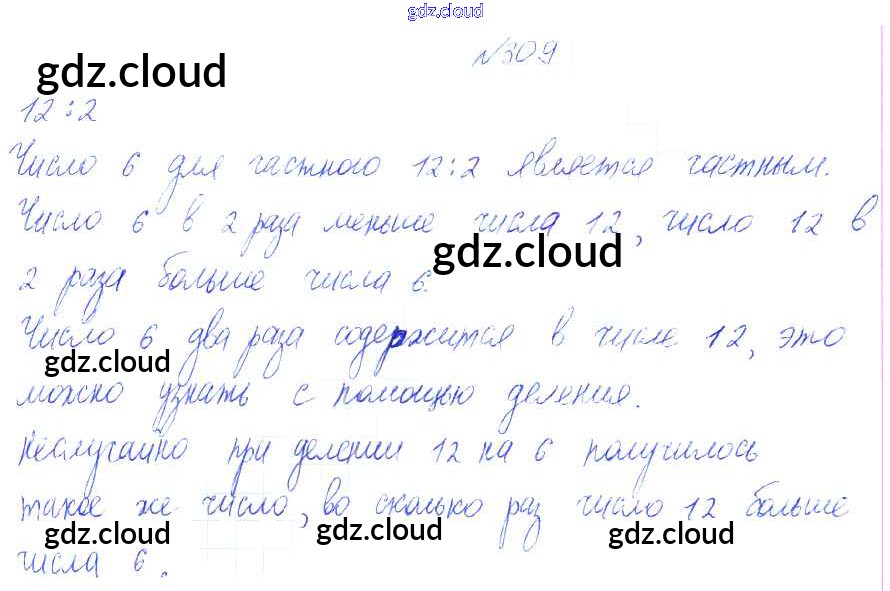 gdz.cloud
№309
gdz.cloud
12:2
Число 6 для частного 12:2 является частным.
Число 6 в 2 раза меньше числа 12, число 12 в
gdz.cloud
2 раза больше числа 6.
Число 6 два раза содержится в числе 12, это
gdz.cloud
можно узнать с помощью деления.
Неслучайно при делении 12 на 6 получилось
такое же число, во сколько раз число 12 больше
gdz.cloud gdz.cloud gdz.cloud
числа 6.